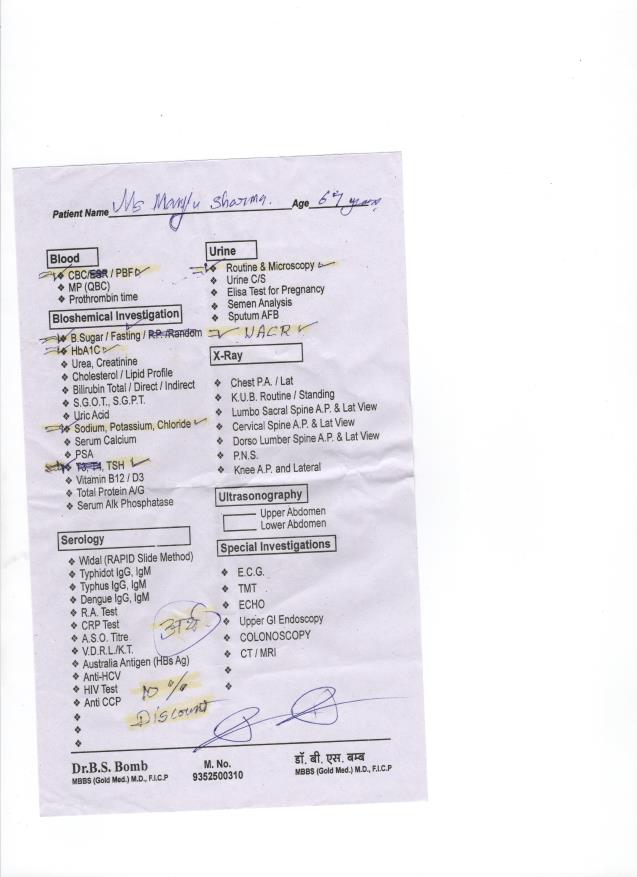 Patient Name Ms Manju Sharma. Age 67 years
Blood
❖ CBC/ESR / PBF ✓
❖ MP (QBC)
❖ Prothrombin time
Bioshemical Investigation
❖ B.Sugar / Fasting / R.P. /Random
❖ HbA1C ✓
❖ Urea, Creatinine
❖ Cholesterol / Lipid Profile
❖ Bilirubin Total / Direct / Indirect
❖ S.G.O.T., S.G.P.T.
❖ Uric Acid
❖ Sodium, Potassium, Chloride ✓
❖ Serum Calcium
❖ PSA
❖ T3, T4, TSH ✓
❖ Vitamin B12 / D3
❖ Total Protein A/G
❖ Serum Alk Phosphatase
Serology
❖ Widal (RAPID Slide Method)
❖ Typhidot IgG, IgM
❖ Typhus IgG, IgM
❖ Dengue IgG, IgM
❖ R.A. Test
❖ CRP Test
❖ A.S.O. Titre
❖ V.D.R.L./K.T.
❖ Australia Antigen (HBs Ag)
❖ Anti-HCV
❖ HIV Test
❖ Anti CCP
❖
❖
❖
अर्थ
10 %
Discount
Urine
❖ Routine & Microscopy ✓
❖ Urine C/S
❖ Elisa Test for Pregnancy
❖ Semen Analysis
❖ Sputum AFB
✓ UACR ✓
X-Ray
❖ Chest P.A. / Lat
❖ K.U.B. Routine / Standing
❖ Lumbo Sacral Spine A.P. & Lat View
❖ Cervical Spine A.P. & Lat View
❖ Dorso Lumber Spine A.P. & Lat View
❖ P.N.S.
❖ Knee A.P. and Lateral
Ultrasonography
Upper Abdomen
Lower Abdomen
Special Investigations
❖ E.C.G.
❖ TMT
❖ ECHO
❖ Upper GI Endoscopy
❖ COLONOSCOPY
❖ CT / MRI
❖
❖
Dr.B.S. Bomb
MBBS (Gold Med.) M.D., F.I.C.P
M. No.
9352500310
डॉ. बी. एस. बम्ब
MBBS (Gold Med.) M.D., F.I.C.P